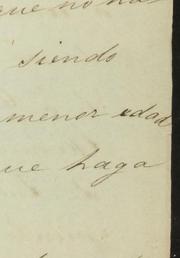 que no ha
siendo
menor edad
que haga